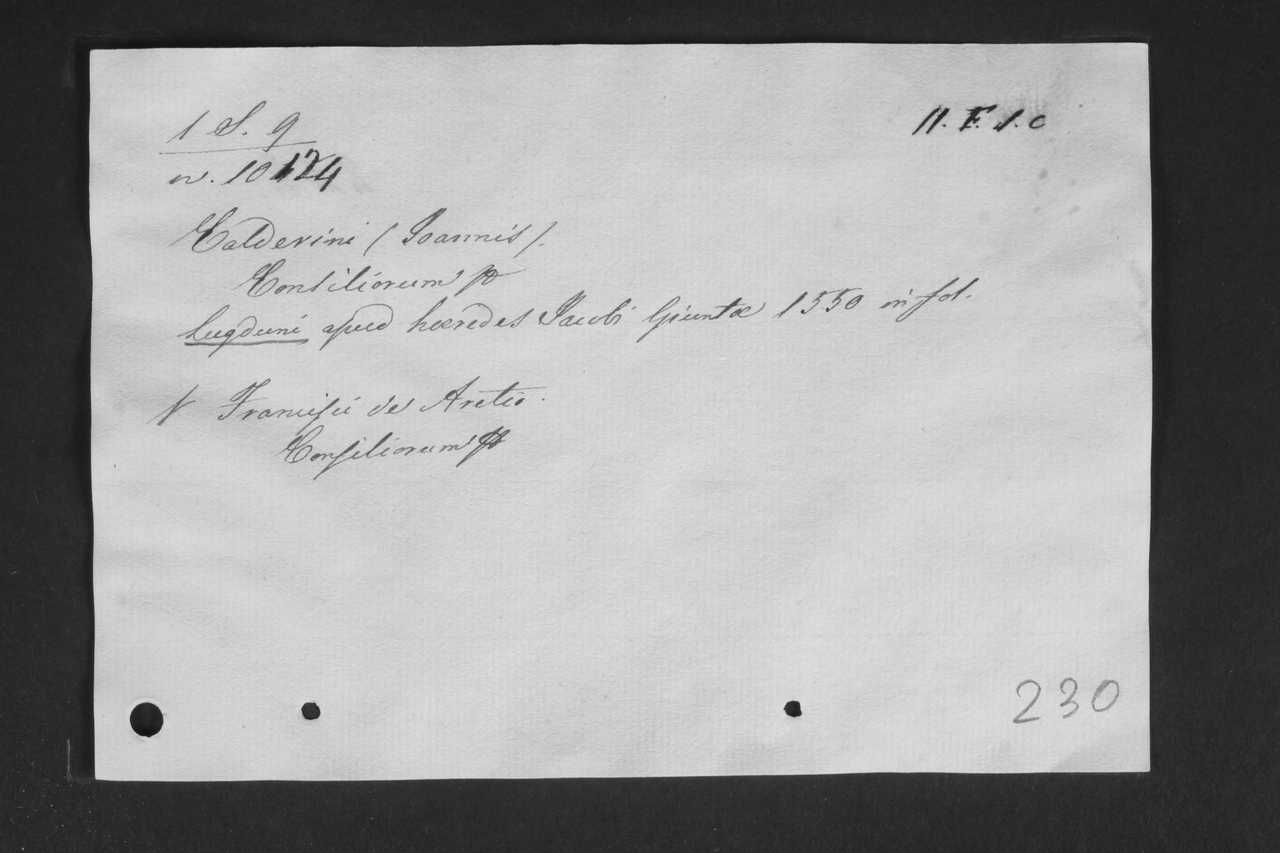 1 S. 9
II. F. 1. c
n. 10124
Calderini (Joannis).
Consiliorum
Lugduni apud hæredes Jacobi Giuntæ 1550 in fol.
Francisci de Aretio.
Consiliorum
230